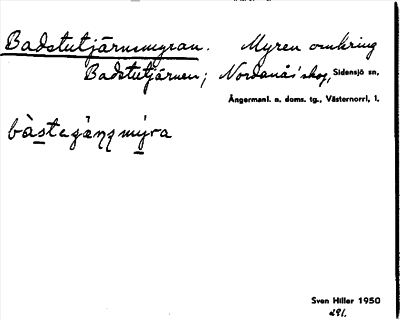 Badstutjärnmyran. Myren omkring
Badstutjärnen; Nordanås skog, Sidensjö sn,
Ångermanl. n. doms. tg., Västernorrl, l.
Sven Hiller 1950
291.